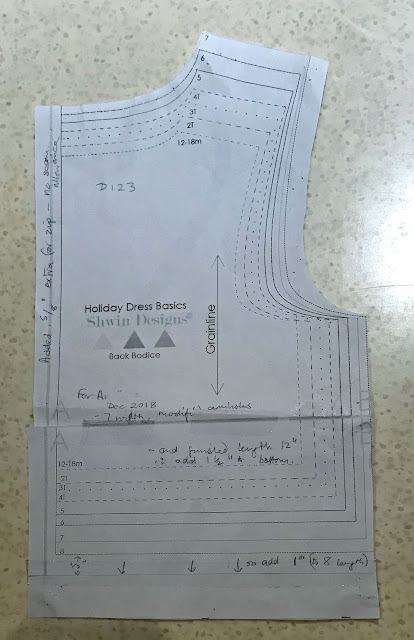 7
6
5
4T
3T
2T
12-18m
D123
Added 5/8" extra for zip - no seam
allowance
Holiday Dress Basics
Shwin Designs©
Back Bodice
Grainline
For
Dec 2018
- 7 width, armholes
A
A
- and finished length 12"
∴ add 1 1/2" to bottom
12-18m
2T
3T
4T
5
6
7
8
1/2"
so add 1" (to 8 length)